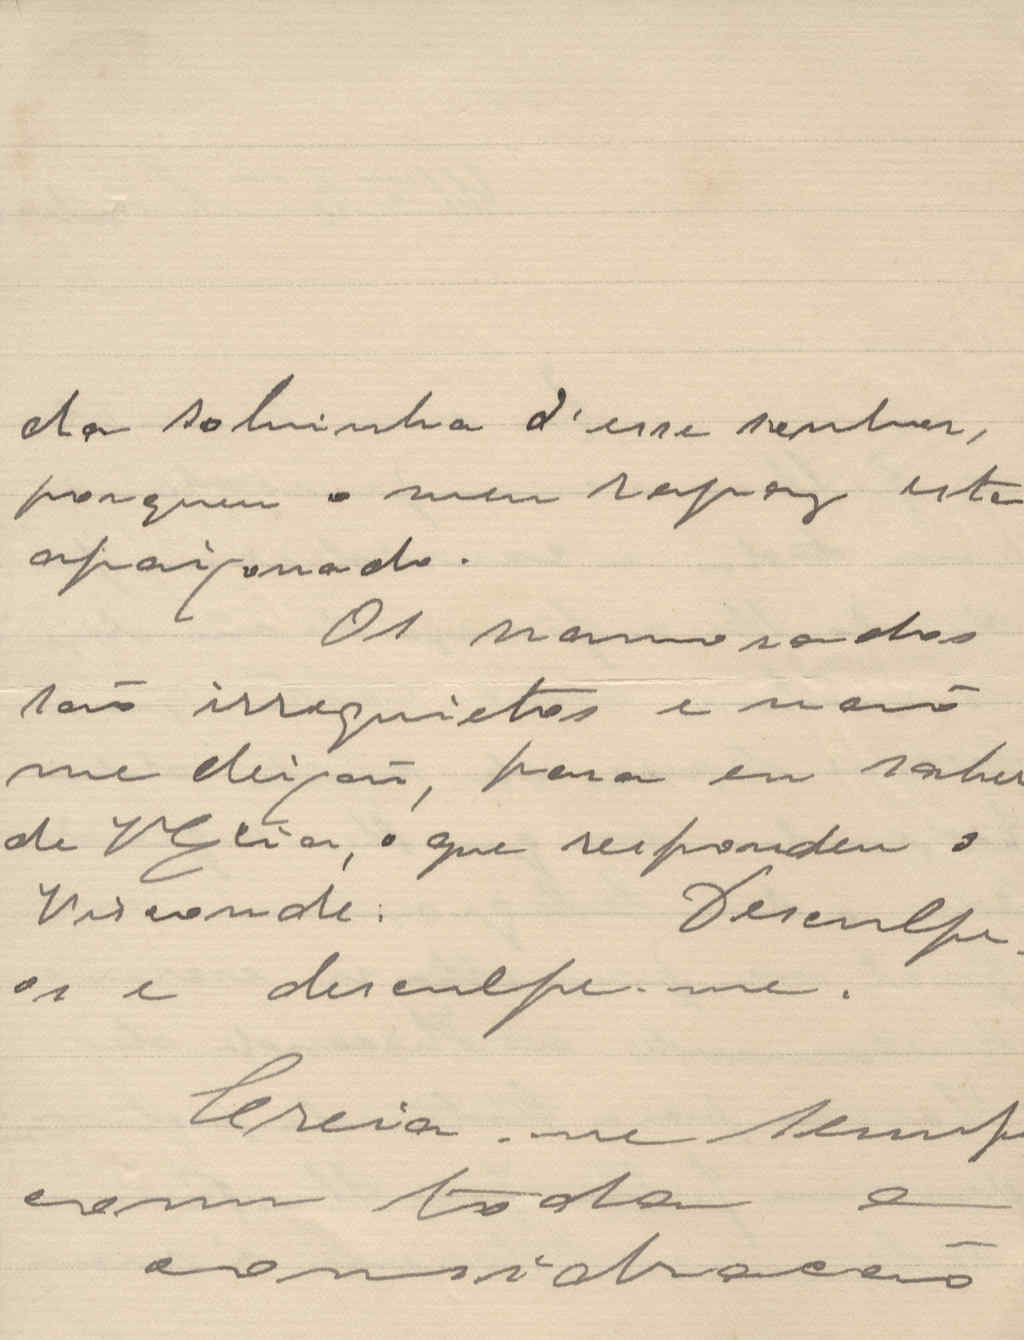 da sobrinha d'esse senhor,
porquem o meu rapaz esta
apaixonado.
Os namorados
são irrequietos e não
me deixão, para eu saber
de VExcia, o que respondeu o
Visconde. Desculpe-
os e desculpe-me.
Creia-me semp
com toda a
considração